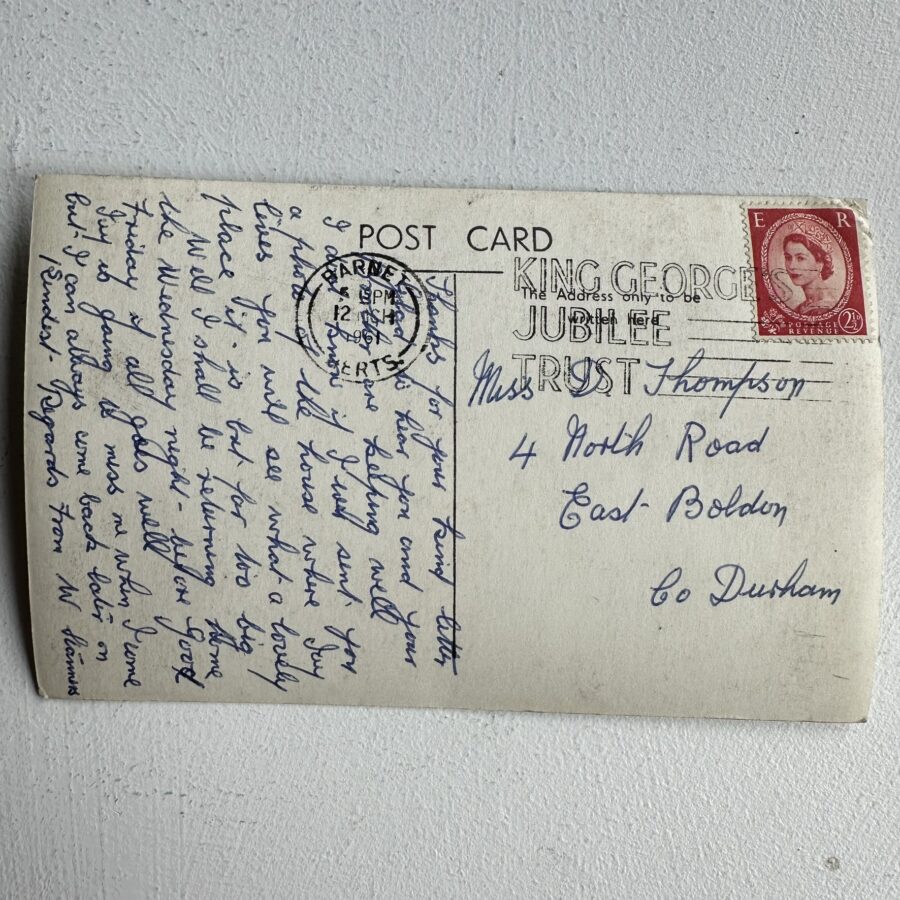 POST CARD
The Address only to be
written Here
BARNET
PM
12
HERTS
KING GEORGE'S
JUBILEE
TRUST
E R
POSTAGE
REVENUE
2½D
Miss Thompson
4 North Road
East Boldon
Co Durham
Thanks for your kind letter
glad to hear you and your
are keeping well
I if I will sent you
a photo of the house where Ivy
lives you will see what a lovely
place it is but far too big
Well I shall be returning Home
the Wednesday night before Good
Friday if all goes well
Ivy is going to miss me when I come
but I can always come back later on
Kindest Regards From W